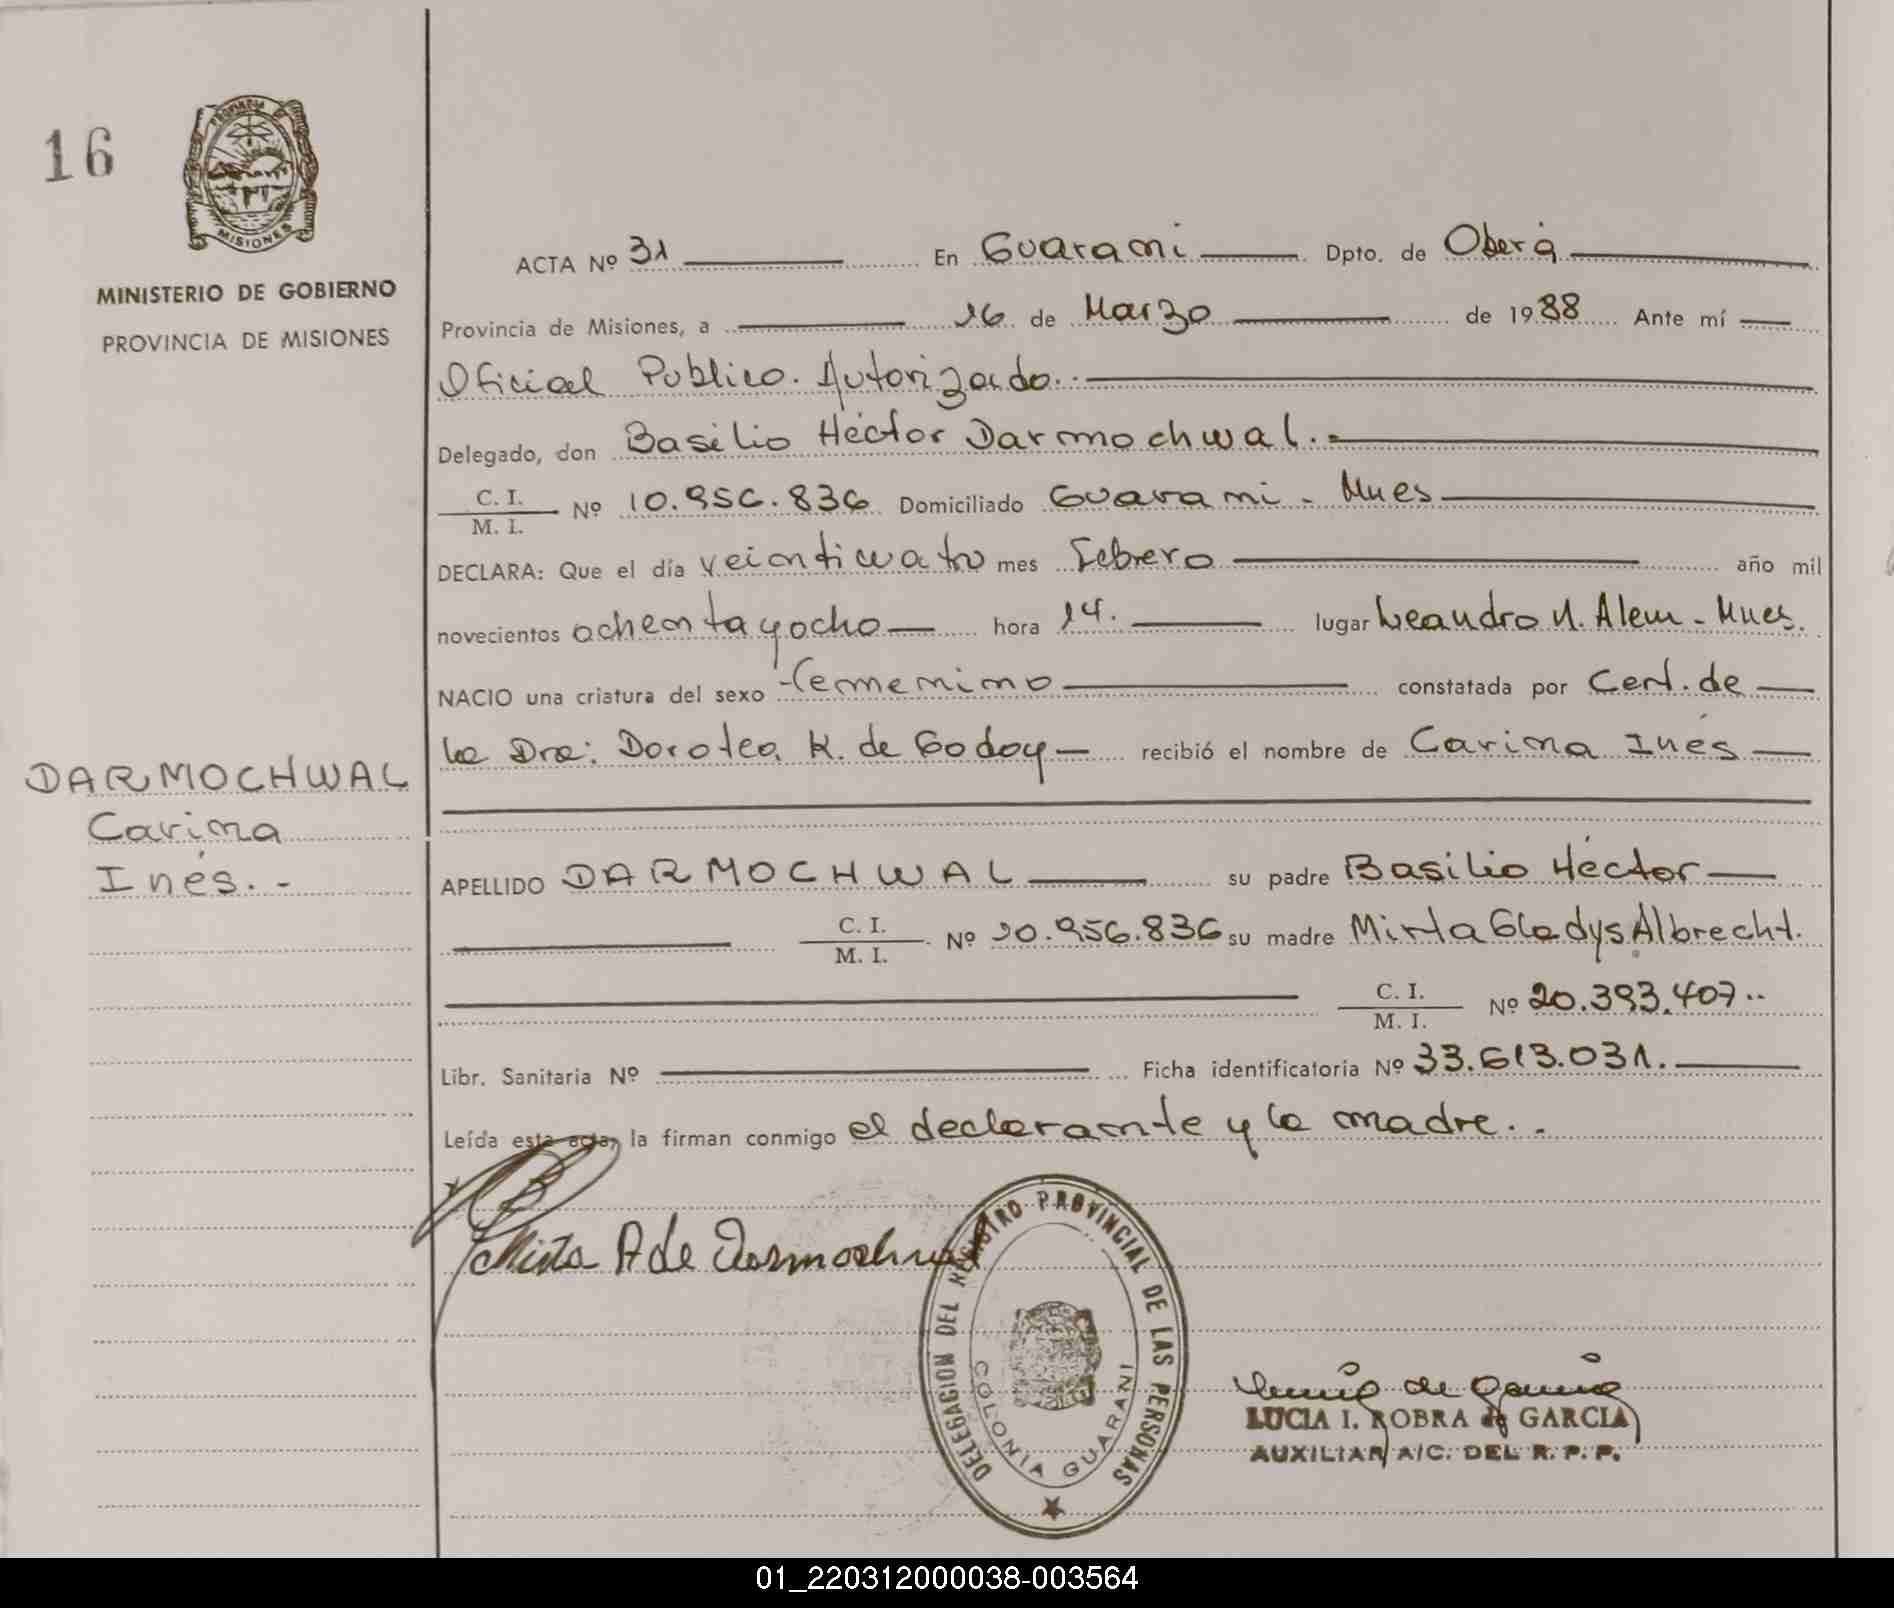 16
PROVINCIA DE
MISIONES
MINISTERIO DE GOBIERNO
PROVINCIA DE MISIONES
ACTA Nº 31 En Guarani Dpto. de Oberá
Provincia de Misiones, a 16 de Marzo de 1988 Ante mí
Oficial Publico Autorizado.-
Delegado, don Basilio Héctor Darmochwal.-
C. I.
M. I. Nº 10.956.836 Domiciliado Guarani - Mnes
DECLARA: Que el día veinticuatro mes Febrero año mil
novecientos ochenta y ocho hora 14. lugar Leandro N. Alem - Mnes.
NACIO una criatura del sexo femenino constatada por Cert. de
la Dra: Dorotea K. de Godoy recibió el nombre de Carina Inés
DARMOCHWAL
Carina
Inés.-
APELLIDO DARMOCHWAL su padre Basilio Héctor
C. I.
M. I. Nº 10.956.836 su madre Mirta Gladys Albrecht.
C. I.
M. I. Nº 20.393.407..
Libr. Sanitaria Nº Ficha identificatoria Nº 33.613.031.
Leída esta acta, la firman conmigo el declarante y la madre..
Mirta A de Darmochwal
DELEGACION DEL REGISTRO PROVINCIAL DE LAS PERSONAS
COLONIA GUARANI
LUCIA I. ROBRA de GARCIA
AUXILIAR A/C. DEL R. P. P.
01_220312000038-003564